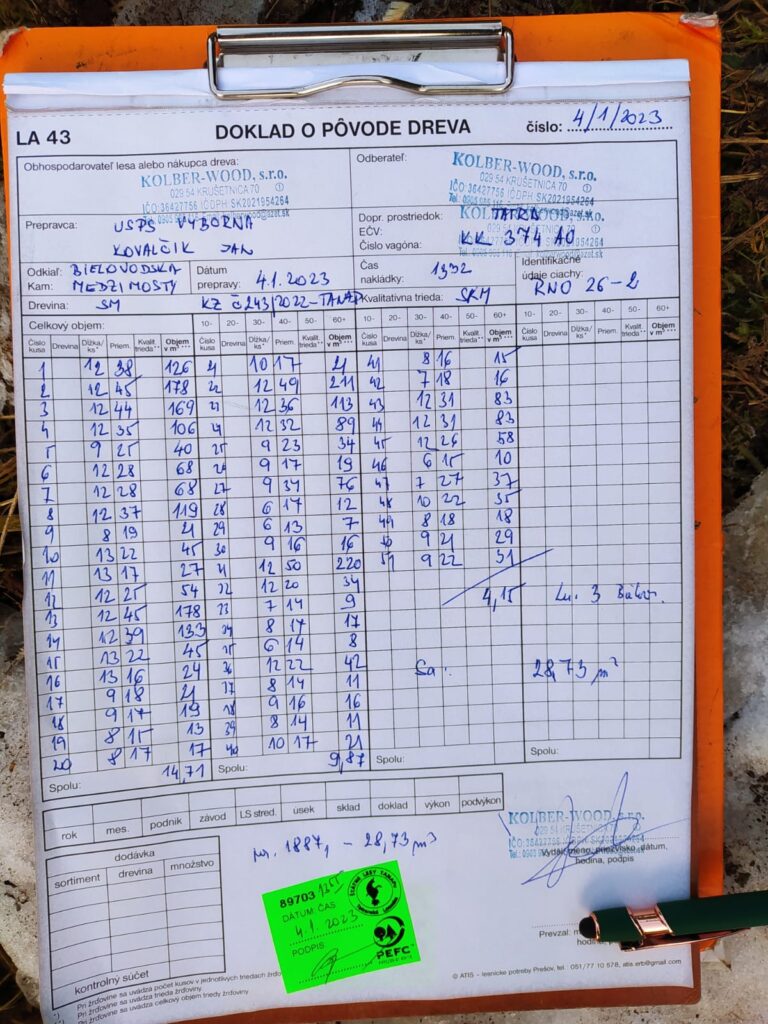 LA 43 DOKLAD O PÔVODE DREVA číslo: 4/1/2023
Obhospodarovateľ lesa alebo nákupca dreva:
KOLBER-WOOD, s.r.o.
029 54 KRUŠETNICA 70
IČO:36427756 IČ DPH:SK2021954264
Odberateľ:
KOLBER-WOOD, s.r.o.
029 54 KRUŠETNICA 70
IČO:36427756 IČ DPH:SK2021954264
Prepravca: USPS VÝBORNÁ
KOVALČIK JAN
Dopr. prostriedok: TATRA
EČV: KK 374 AO
Číslo vagóna:
Odkiaľ: BIELOVODSKA
Kam: MEDZIMOSTY
Dátum
prepravy: 4.1.2023
Čas
nakládky: 1332
Identifikačné
údaje ciachy: RNO 26-2
Drevina: SM KZ č 243/2022-TANAP Kvalitatívna trieda: SKM
Celkový objem: 10- 20- 30- 40- 50- 60+ 10- 20- 30- 40- 50- 60+ 10- 20- 30- 40- 50- 60+
Číslo kusa Drevina Dĺžka/ks* Priem. Kvalit. trieda** Objem v m³***
1 12 38 126 21 10 17 21 41 8 16 15
2 12 45 178 22 12 49 211 42 7 18 16
3 12 44 169 23 12 36 113 43 12 31 83
4 12 35 106 24 12 32 89 44 12 31 83
5 9 25 40 25 9 23 34 45 12 26 58
6 12 28 68 26 9 17 19 46 6 15 10
7 12 28 68 27 9 34 76 47 7 27 37
8 12 37 119 28 6 17 12 48 10 22 35
9 8 19 21 29 6 13 7 49 8 18 18
10 13 22 45 30 9 16 16 50 9 21 29
11 13 17 27 31 12 50 220 51 9 22 31
12 12 25 54 32 12 20 34 4,15
13 12 45 178 33 7 14 9
14 12 39 133 34 8 17 17
15 13 22 45 35 6 14 8
16 13 16 24 36 12 22 42 28,73 m³
17 9 18 21 37 8 14 11
18 9 17 19 38 9 16 16
19 8 15 13 39 8 14 11
20 8 17 17 40 10 17 21
Spolu: 14,71 Spolu: 9,87 Spolu: Spolu:
rok mes. podnik závod LS stred. úsek sklad doklad výkon podvýkon
1887, – 28,73 m³
KOLBER-WOOD, s.r.o.
dodávka
sortiment drevina množstvo
kontrolný súčet
89703
DÁTUM ČAS
4.1.2023
PODPIS
ŠTÁTNE LESY TANAPU
PEFC
Vydal: meno, priezvisko, dátum,
hodina, podpis
Prevzal:
Pri žrďovine sa uvádza počet kusov v jednotlivých triedach žrďoviny
Pri žrďovine sa uvádza trieda žrďoviny.
Pri žrďovine sa uvádza celkový objem triedy žrďoviny
© ATIS - lesnícke potreby Prešov, tel.: 051/77 10 578, atis.erb@gmail.com